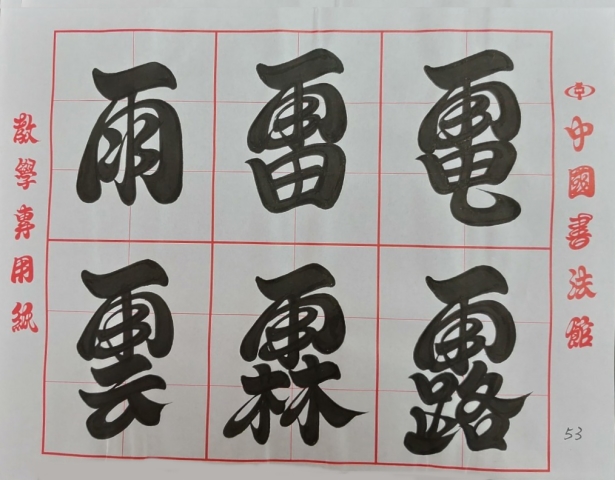 雨雷電
雲霖露
中國書法館
教學專用紙
53